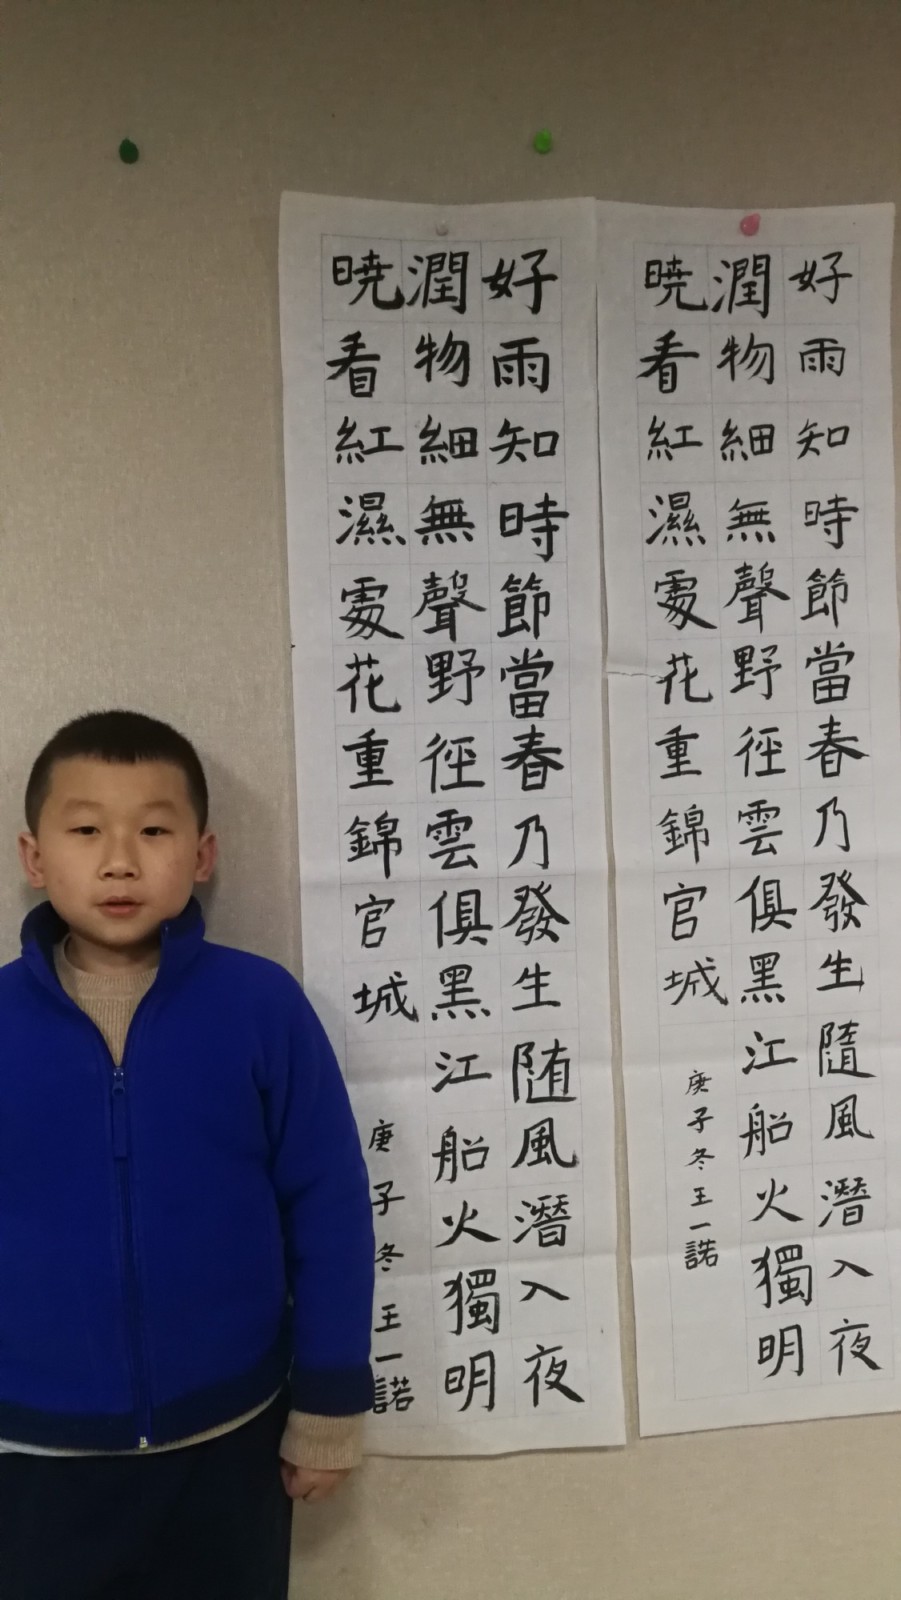 好雨知時節當春乃發生隨風潛入夜
潤物細無聲野徑雲俱黑江船火獨明
曉看紅濕處花重錦官城
庚子冬王一諾
好雨知時節當春乃發生随風潛入夜
潤物細無聲野徑雲俱黑江船火獨明
曉看紅濕處花重錦官城
庚子冬王一諾